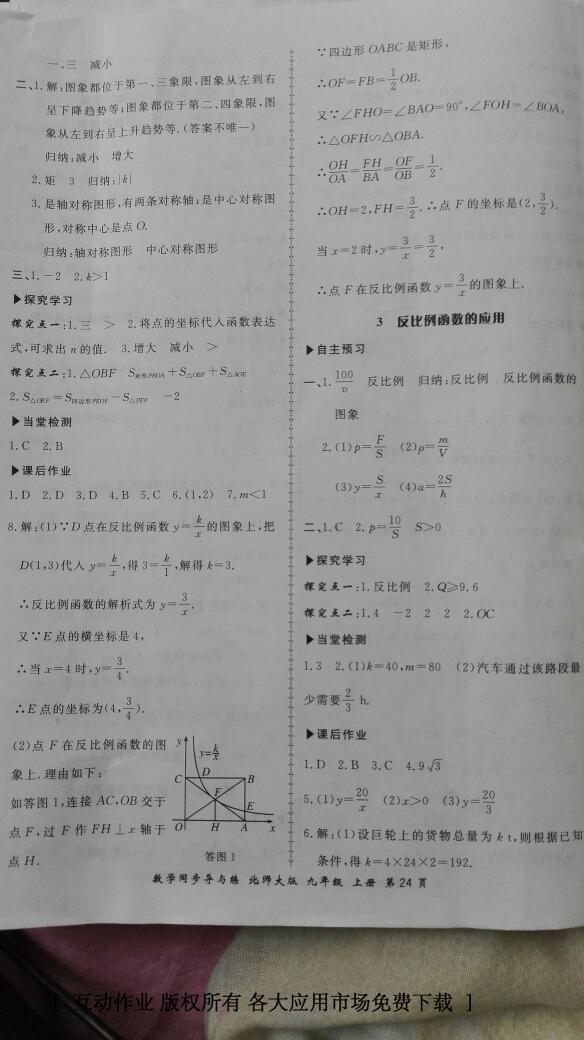 一、三　减小
二、1.解:图象都位于第一、三象限,图象从左到右
呈下降趋势等;图象都位于第二、四象限,图
象从左到右呈上升趋势等.(答案不唯一)
归纳:减小　增大
2.矩　3　归纳:|k|
3.是轴对称图形,有两条对称轴;是中心对称图
形,对称中心是点 O.
归纳:轴对称图形　中心对称图形
三、1.－2　2.k＞1
▶探究学习
探究点一:1.三　＞　2.将点的坐标代入函数表达
式,可求出 n 的值.　3.增大　减小　＞
探究点二:1.△OBF　S矩形PBOA＋S△OBF＋S△AOE
2.S△OEF＝S四边形PEOF－S△PEF　－2
▶当堂检测
1.C　2.B
▶课后作业
1.D　2.D　3.D　4.B　5.C　6.(1,2)　7.m＜1
8.解:(1)∵D 点在反比例函数 y＝k/x 的图象上,把
D(1,3)代入 y＝k/x,得 3＝k/1,解得 k＝3.
∴反比例函数的解析式为 y＝3/x.
又∵E 点的横坐标是 4,
∴当 x＝4 时,y＝3/4.
∴E 点的坐标为(4,3/4).
(2)点 F 在反比例函数的图
象上.理由如下:
如答图 1,连接 AC,OB 交于
点 F,过 F 作 FH⊥x 轴于
点 H.
y
y=k/x
C D B
F
E
O H A x
答图 1
∵四边形 OABC 是矩形,
∴OF＝FB＝1/2 OB.
又∵∠FHO＝∠BAO＝90°,∠FOH＝∠BOA,
∴△OFH∽△OBA.
∴OH/OA＝FH/BA＝OF/OB＝1/2.
∴OH＝2,FH＝3/2.∴点 F 的坐标是(2,3/2).
当 x＝2 时,y＝3/x＝3/2,
∴点 F 在反比例函数 y＝3/x 的图象上.
3　反比例函数的应用
▶自主预习
一、1.100/v　反比例　归纳:反比例　反比例函数的
图象
2.(1)p＝F/S　(2)ρ＝m/V
(3)y＝S/x　(4)a＝2S/h
二、1.C　2.p＝10/S　S＞0
▶探究学习
探究点一:1.反比例　2.Q≥9.6
探究点二:1.4　－2　2　2　2.OC
▶当堂检测
1.3　2.(1)k＝40,m＝80　(2)汽车通过该路段最
少需要 2/3 h.
▶课后作业
1.D　2.B　3.C　4.9√3
5.(1)y＝20/x　(2)x＞0　(3)y＝20/3
6.解:(1)设巨轮上的货物总量为 k t,则根据已知
条件,得 k＝4×24×2＝192.
数学同步导与练　北师大版　九年级　上册　第 24 页
[ 互动作业 版权所有 各大应用市场免费下载 ]